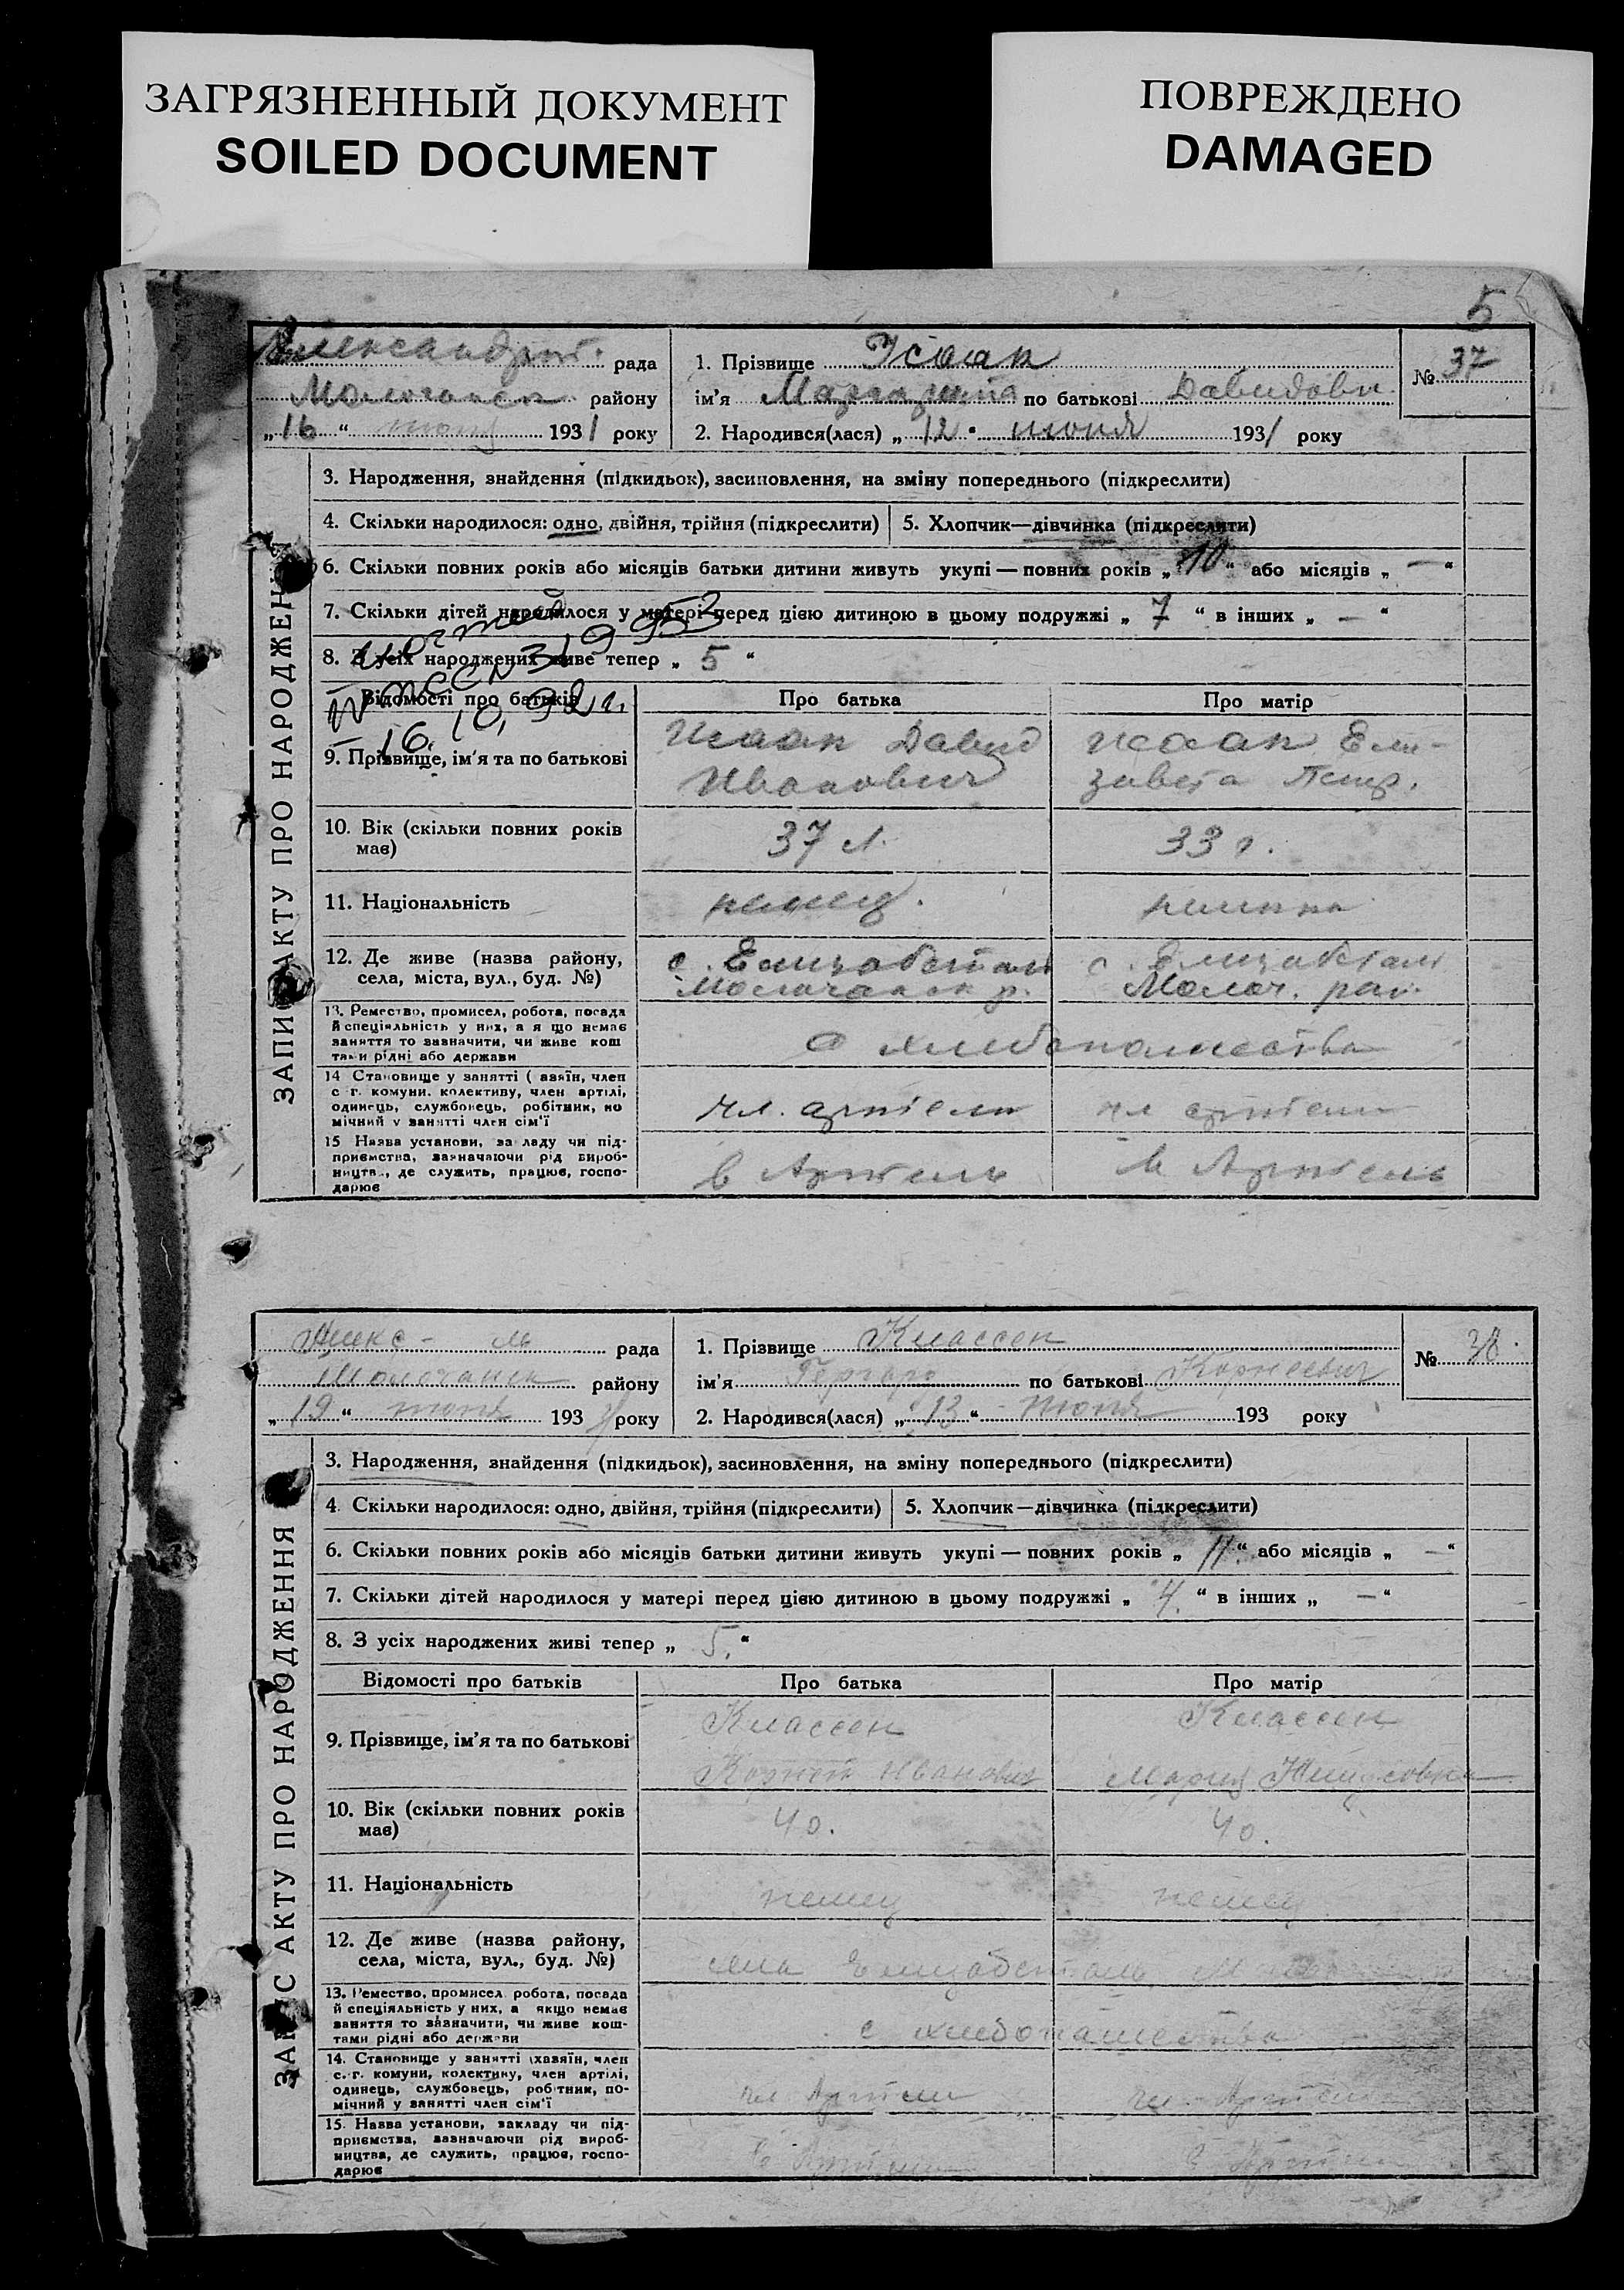 ЗАГРЯЗНЕННЫЙ ДОКУМЕНТ
SOILED DOCUMENT
ПОВРЕЖДЕНО
DAMAGED
5
Александрт. рада
Молочанск району
„16“ июня 1931 року
1. Прізвище Исаак
ім'я Маргарита по батькові Давидовн
2. Народився(лася) „12“ июня 1931 року
№ 37
ЗАПИС АКТУ ПРО НАРОДЖЕННЯ
3. Народження, знайдення (підкидьок), засиновлення, на зміну попереднього (підкреслити)
4. Скільки народилося: одно, двійня, трійня (підкреслити) 5. Хлопчик—дівчинка (підкреслити)
6. Скільки повних років або місяців батьки дитини живуть укупі — повних років „10“ або місяців „—“
7. Скільки дітей народилося у матері перед цією дитиною в цьому подружжі „7“ в інших „—“
8. З усіх народжених живе тепер „5“
N 319953
16.10.92 г.
Відомості про батьків Про батька Про матір
9. Прізвище, ім'я та по батькові
Исаак Давид
Иванович
Исаак Ели-
завета Петр.
10. Вік (скільки повних років
має)
37 л. 33 г.
11. Національність немец. немка
12. Де живе (назва району,
села, міста, вул., буд. №)
с. Елизабеталь
Молочанск р.
с. Елизабеталь
Молоч. рай.
13. Ремество, промисел, робота, посада
й спеціяльність у них, а я що немає
заняття то зазначити, чи живе кош
тами рідні або держави
хлебопашества
14 Становище у занятті ( азяїн, член
с г. комуни. колективу, член артілі,
одинець, службовець, робітник, по
мічний у занятті член сім'ї
чл. артели чл артели
15 Назва установи, за ладу чи під-
приємства, зазначаючи рід вироб-
ництв., де служить, працює, госпо-
дарює
в Артель в Артель
Алекс- ль рада
Молочанск району
„19“ июня 1931 року
1. Прізвище Классен
ім'я Гергард по батькові Корнеевич
2. Народився(лася) „13“ июня 193 року
№ 38.
ЗАПИС АКТУ ПРО НАРОДЖЕННЯ
3. Народження, знайдення (підкидьок), засиновлення, на зміну попереднього (підкреслити)
4 Скільки народилося: одно, двійня, трійня (підкреслити) 5. Хлопчик—дівчинка (підкреслити)
6. Скільки повних років або місяців батьки дитини живуть укупі — повних років „11“ або місяців „—“
7. Скільки дітей народилося у матері перед цією дитиною в цьому подружжі „4.“ в інших „—“
8. З усіх народжених живі тепер „5.“
Відомості про батьків Про батька Про матір
9. Прізвище, ім'я та по батькові
Классен
Корней Иванович
Классен
Мария
10. Вік (скільки повних років
має)
40. 40.
11. Національність немец немец
12. Де живе (назва району,
села, міста, вул., буд. №)
села Елизабеталь
13. Ремество, промисел робота, посада
й спеціяльність у них, а якщо немає
заняття то зазначити, чи живе кош-
тами рідні або держави
с хлебопашества
14. Становище у занятті (хазяїн, член
с.-г. комуни, колективу, член артілі,
одинець, службовець, робітник, по-
мічний у занятті член сім'ї
чл Артели чл. Артели
15. Назва установи, закладу чи під-
приємства, зазначаючи рід вироб-
ництва, де служить, працює, госпо-
дарює
в Артели в Артели